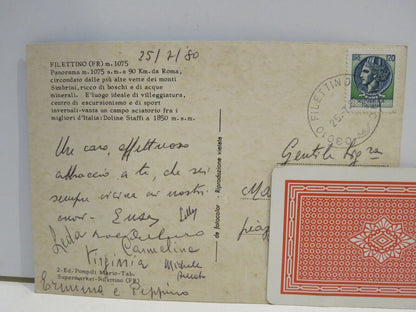 25/7/80
FILETTINO (FR) m. 1075
Panorama m. 1075 s.m. e 90 Km. da Roma,
circondato dalle più alte vette dei monti
Simbrini, ricco di boschi e di acque
minerali. E' luogo ideale di villeggiatura,
centro di escursionismo e di sport
invernali-vanta un campo sciatorio fra i
migliori d'Italia: Doline Staffi a 1850 m.s.m.
20
FILETTINO
Un caro, affettuoso
abbraccio a te, che sei
sempre vicina ai nostri
cuori - Enza
Lilly
Leda
Carmelina
Virginia
Michele
2-Ed. Pompili Mario-Tab.
Supermarket-Filettino (FR)
Erminia e Peppino
da fotocolor - Riproduzione vietata
Gentile Sig.ra